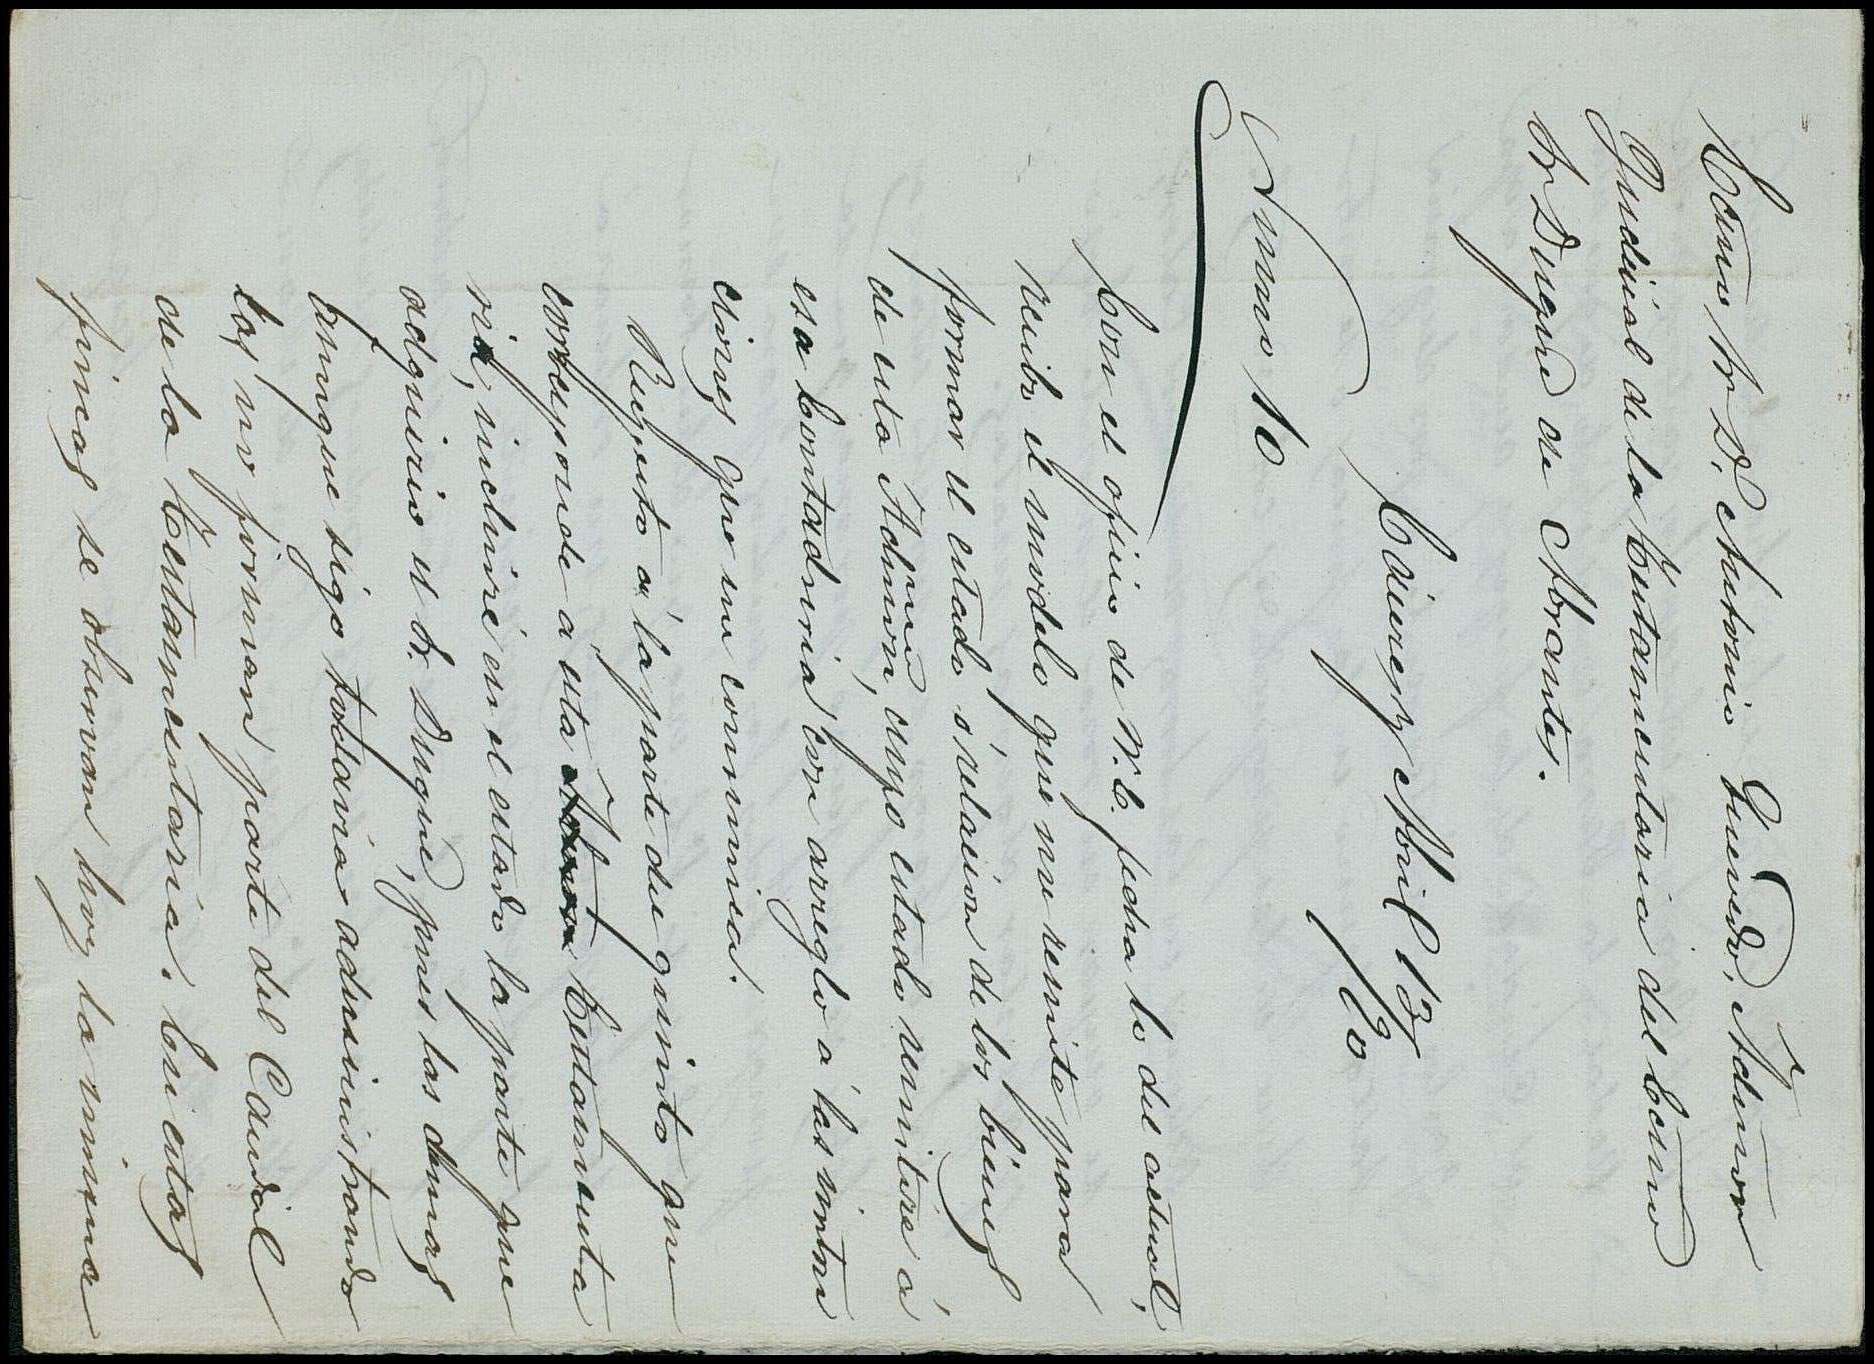 Excmo Sr D. Antonio Quevedo, Admōn
Judicial de la Testamentaria del Excmo
Sr Duque de Abrantes.
Cáceres Abril 13/70
Numo 10
Con el oficio de V.E. fecha 6 del actual,
recibo el modelo que me remite para
formar el estado ó relacion de los bienes
de esta Admon, cuyo estado remitiré á
esa Contaduria con arreglo á las instruc
ciones que me comunica.
Respecto á la parte de quinto que
corresponde á esta Testamenta
ria, incluiré en el estado la parte que
adquirió el Sr. Duque, pues las demas
aunque sigo todavia administrando
las no forman parte del Caudal
de la Testamentaria. En estas
fincas se observan hoy la misma